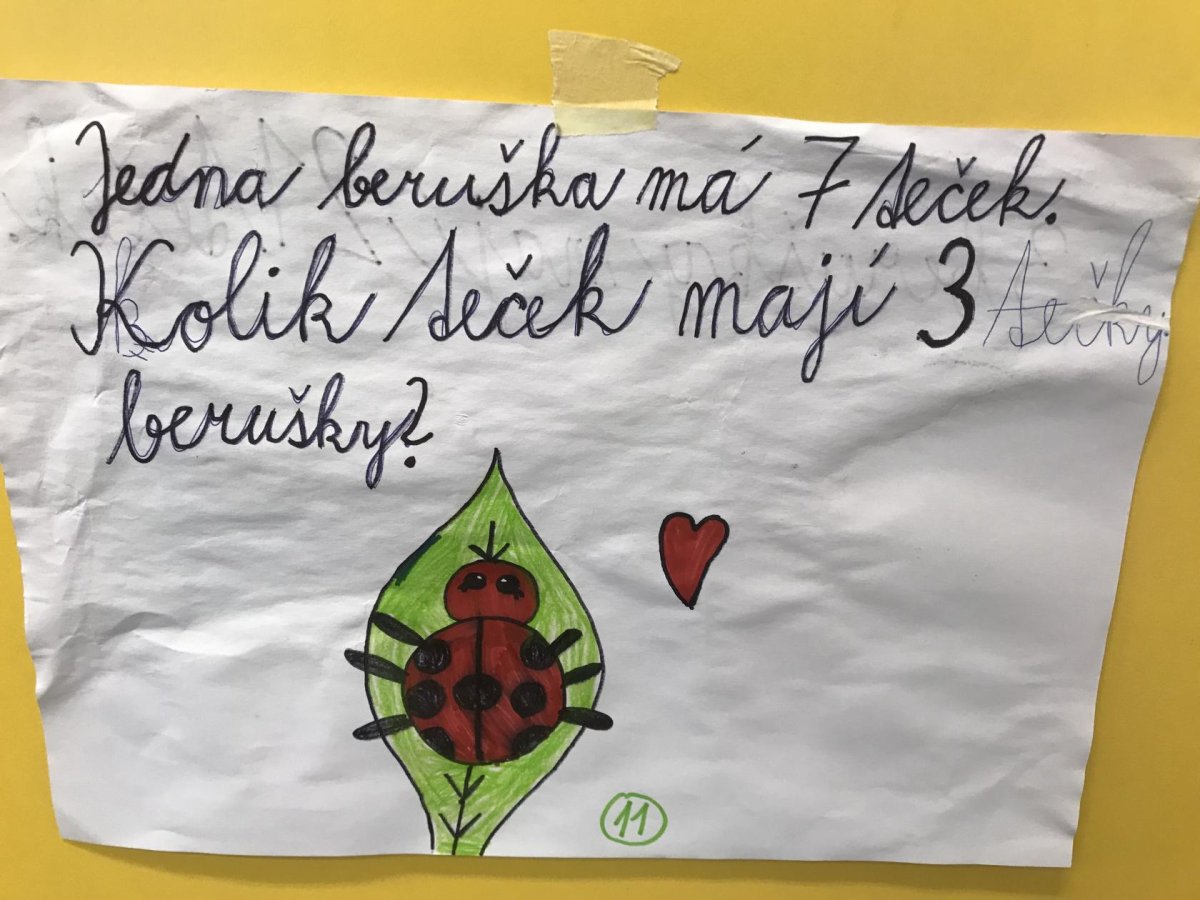 Jedna beruška má 7 teček.
Kolik teček mají 3 tečky
berušky?
11